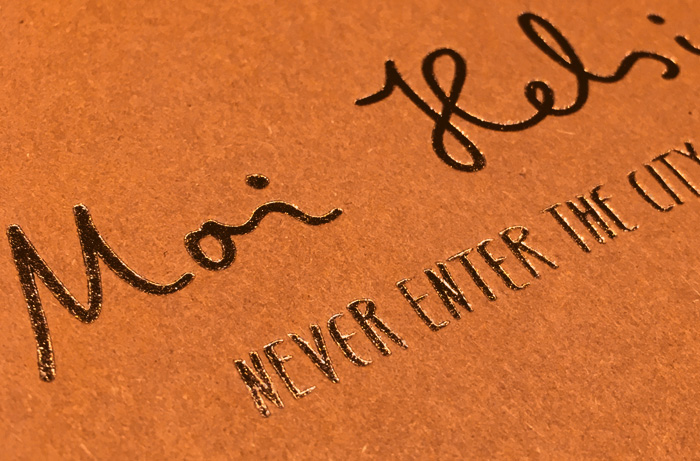 Moi Helsi
NEVER ENTER THE CITY